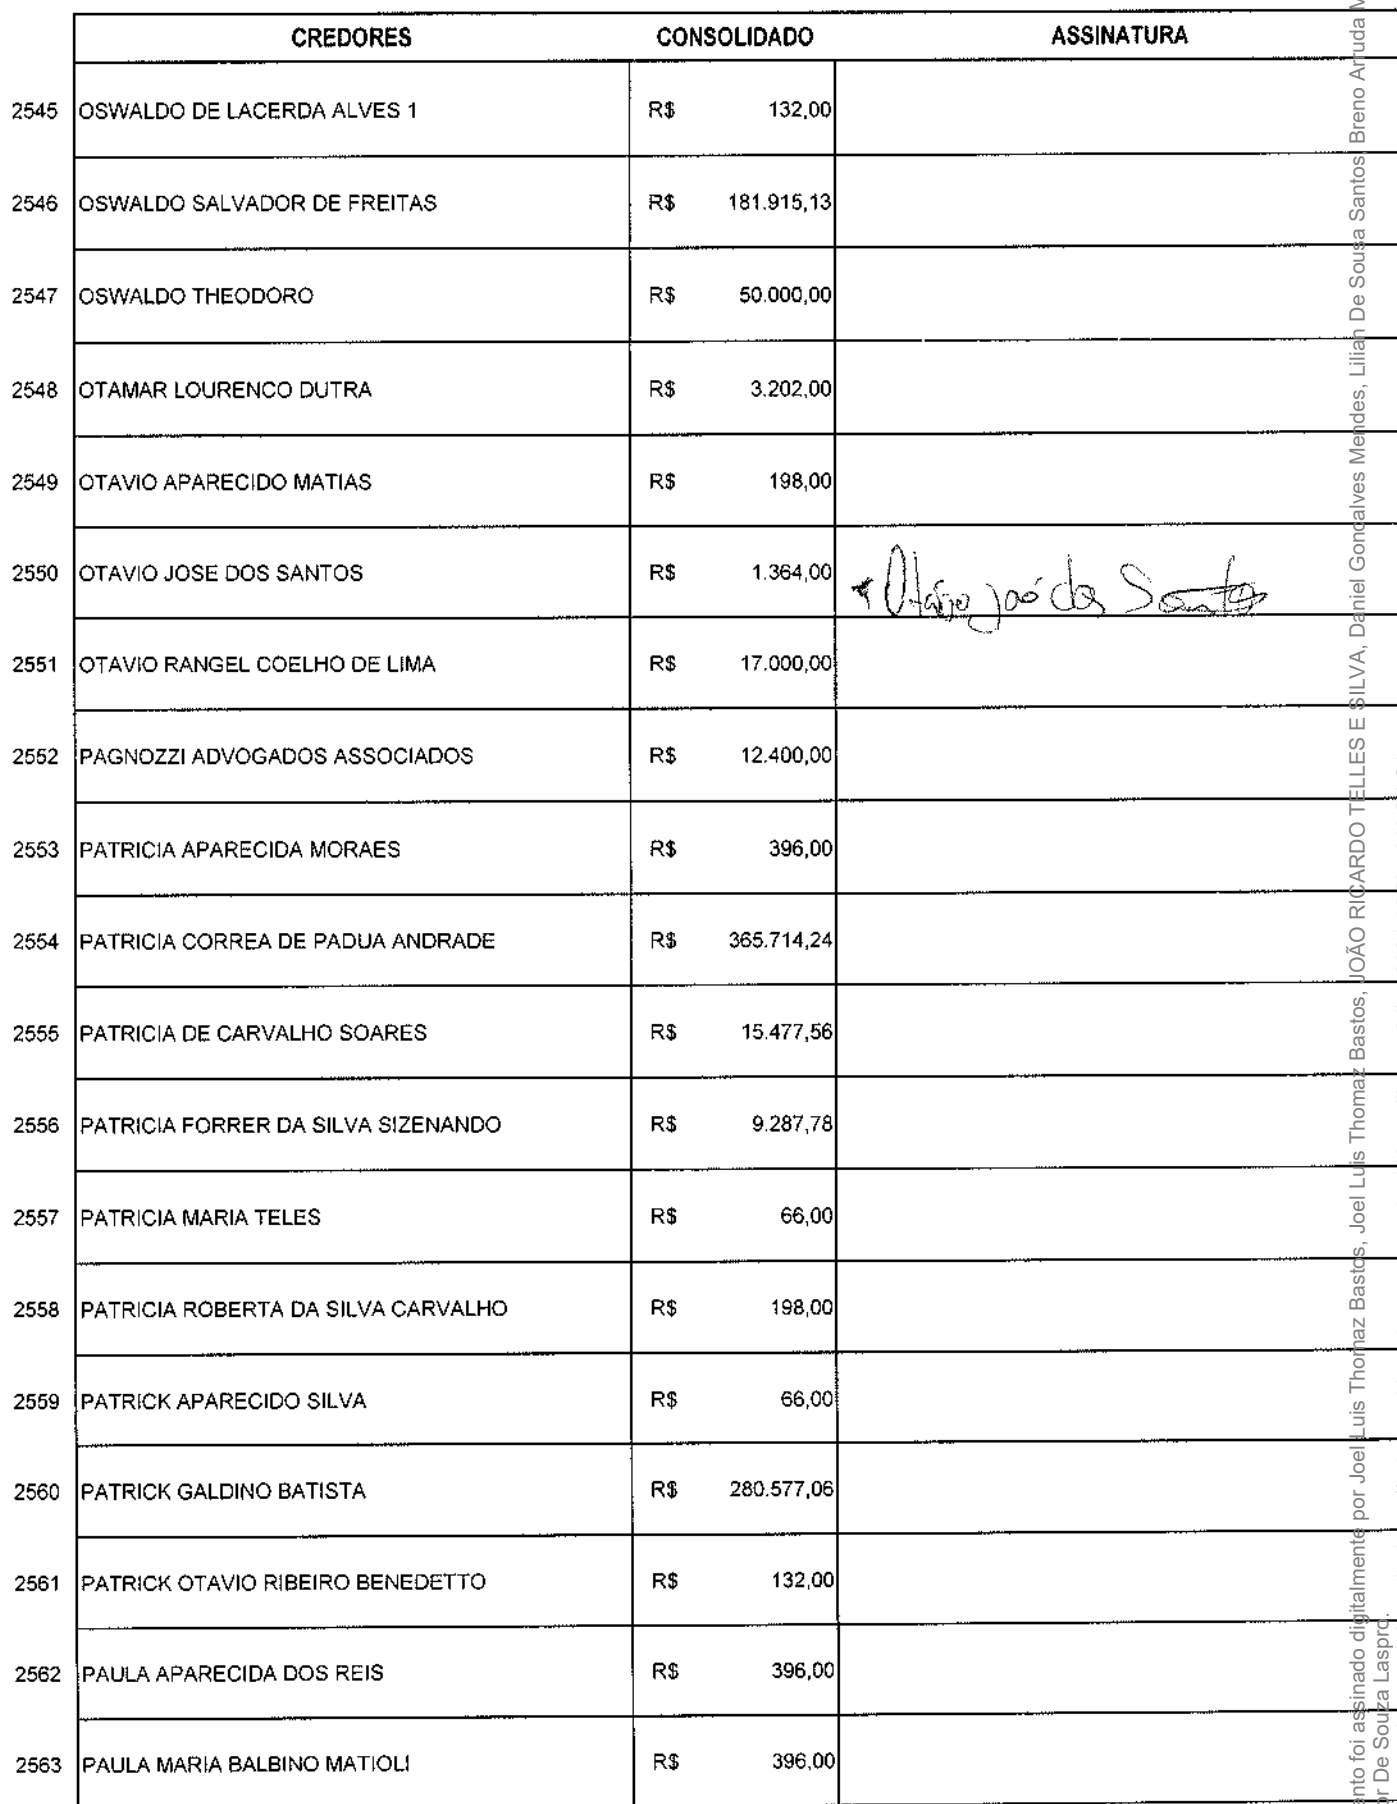 CREDORES CONSOLIDADO ASSINATURA
2545 OSWALDO DE LACERDA ALVES 1 R$ 132,00
2546 OSWALDO SALVADOR DE FREITAS R$ 181.915,13
2547 OSWALDO THEODORO R$ 50.000,00
2548 OTAMAR LOURENCO DUTRA R$ 3.202,00
2549 OTAVIO APARECIDO MATIAS R$ 198,00
2550 OTAVIO JOSE DOS SANTOS R$ 1.364,00 Otavio José dos Santos
2551 OTAVIO RANGEL COELHO DE LIMA R$ 17.000,00
2552 PAGNOZZI ADVOGADOS ASSOCIADOS R$ 12.400,00
2553 PATRICIA APARECIDA MORAES R$ 396,00
2554 PATRICIA CORREA DE PADUA ANDRADE R$ 365.714,24
2555 PATRICIA DE CARVALHO SOARES R$ 15.477,56
2556 PATRICIA FORRER DA SILVA SIZENANDO R$ 9.287,78
2557 PATRICIA MARIA TELES R$ 66,00
2558 PATRICIA ROBERTA DA SILVA CARVALHO R$ 198,00
2559 PATRICK APARECIDO SILVA R$ 66,00
2560 PATRICK GALDINO BATISTA R$ 280.577,06
2561 PATRICK OTAVIO RIBEIRO BENEDETTO R$ 132,00
2562 PAULA APARECIDA DOS REIS R$ 396,00
2563 PAULA MARIA BALBINO MATIOLI R$ 396,00
nto foi assinado digitalmente por Joel Luis Thomaz Bastos, Joel Luis Thomaz Bastos, JOÃO RICARDO TELLES E SILVA, Daniel Goncalves Mendes, Lilian De Sousa Santos, Breno Arruda M
or De Souza Laspro.